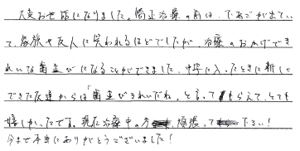 大変お世話になりました。矯正治療の前は、でこが出てい
て、家族や友人に笑われるほどでしたが、治療のおかげでき
れいな歯並びになることができました。中学に入ったときに新しく
できた友達からは「歯並びきれいだね。」と言ってもらえて、とても
嬉しかったです。現在治療中の方 頑張って下さい!
今まで本当にありがとうございました!